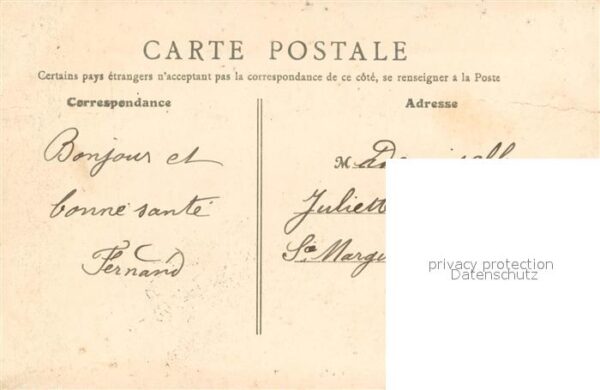 CARTE POSTALE
Certains pays étrangers n'acceptant pas la correspondance de ce côté, se renseigner à la Poste
Correspondance
Adresse
Bonjour et
bonne santé
Fernand
M
Juliett
Ste Margu
privacy protection
Datenschutz